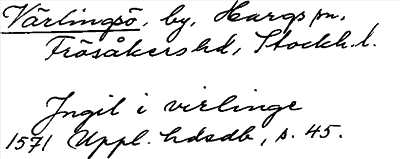 Värlingsö, by, Hargs sn,
Frösåkers hd, Stockh. l.
Ingil i virlinge
1571 Uppl. hdsdb, s. 45.